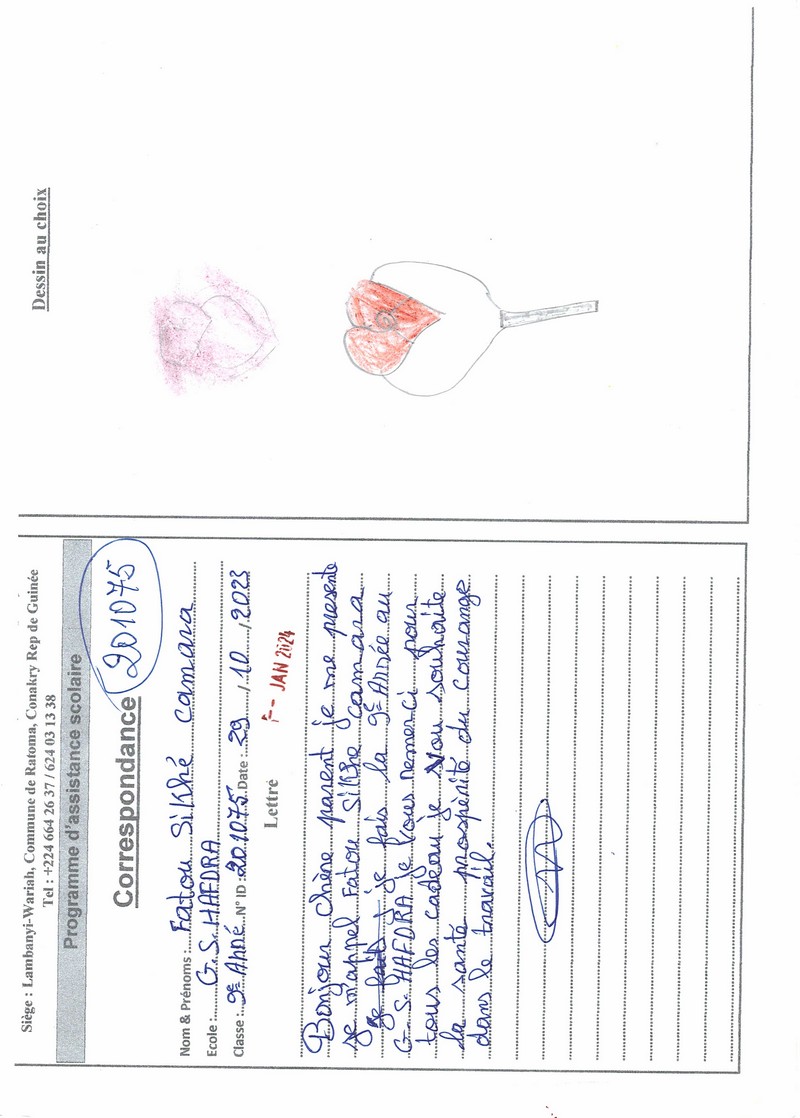 Siège : Lambanyi-Wariah, Commune de Ratoma, Conakry Rep de Guinée
Tel : +224 664 26 37 / 624 03 13 38
Programme d'assistance scolaire
Correspondance 201075
Nom & Prénoms : Fatou Sikhé camara
Ecole : G.S. HAFDRA
Classe : 9e Anné N° ID : 201075 Date : 29 / 10 / 2023
JAN 2024
Lettre
Bonjour chère parent je me presente
je m'appel Fatou Sikhe camara
je fait je fais la 9e Année au
G. S. HAFDRA je vous remerci pour
tous les cadeau je vou souhaite
la santé prospèrité du courange
dans le travail.
Dessin au choix